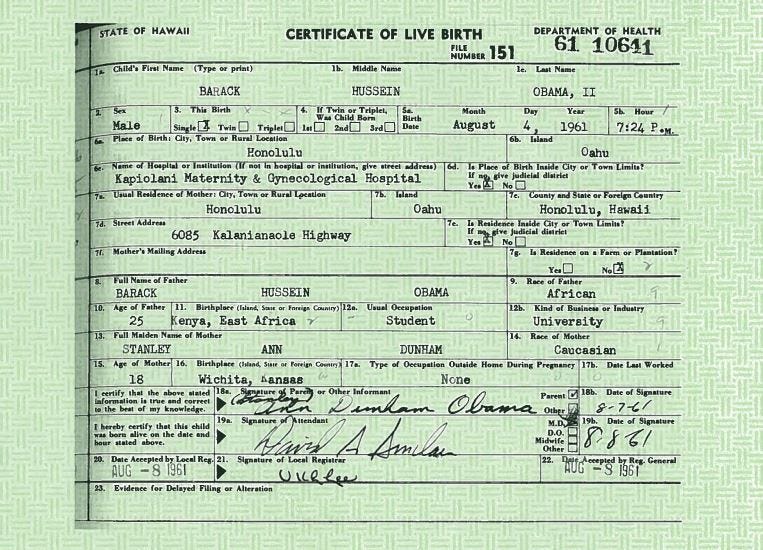 STATE OF HAWAII CERTIFICATE OF LIVE BIRTH DEPARTMENT OF HEALTH
FILE NUMBER 151 61 10641
1a. Child's First Name (Type or print) 1b. Middle Name 1c. Last Name
BARACK HUSSEIN OBAMA, II
2. Sex 3. This Birth 4. If Twin or Triplet, Was Child Born 5a. Birth Date Month Day Year 5b. Hour
Male Single X Twin Triplet 1st 2nd 3rd August 4, 1961 7:24 P.M.
6a. Place of Birth: City, Town or Rural Location 6b. Island
Honolulu Oahu
6c. Name of Hospital or Institution (If not in hospital or institution, give street address) 6d. Is Place of Birth Inside City or Town Limits?
If no, give judicial district
Kapiolani Maternity & Gynecological Hospital Yes X No
7a. Usual Residence of Mother: City, Town or Rural Location 7b. Island 7c. County and State or Foreign Country
Honolulu Oahu Honolulu, Hawaii
7d. Street Address 7e. Is Residence Inside City or Town Limits?
If no, give judicial district
6085 Kalanianaole Highway Yes X No
7f. Mother's Mailing Address 7g. Is Residence on a Farm or Plantation?
Yes No X
8. Full Name of Father 9. Race of Father
BARACK HUSSEIN OBAMA African
10. Age of Father 11. Birthplace (Island, State or Foreign Country) 12a. Usual Occupation 12b. Kind of Business or Industry
25 Kenya, East Africa Student University
13. Full Maiden Name of Mother 14. Race of Mother
STANLEY ANN DUNHAM Caucasian
15. Age of Mother 16. Birthplace (Island, State or Foreign Country) 17a. Type of Occupation Outside Home During Pregnancy 17b. Date Last Worked
18 Wichita, Kansas None
I certify that the above stated information is true and correct to the best of my knowledge. 18a. Signature of Parent or Other Informant Parent Other 18b. Date of Signature
(Stanley) Ann Dunham Obama 8-7-61
I hereby certify that this child was born alive on the date and hour stated above. 19a. Signature of Attendant M.D. D.O. Midwife Other 19b. Date of Signature
David A Sinclair 8-8-61
20. Date Accepted by Local Reg. 21. Signature of Local Registrar 22. Date Accepted by Reg. General
AUG -8 1961 AUG -8 1961
23. Evidence for Delayed Filing or Alteration